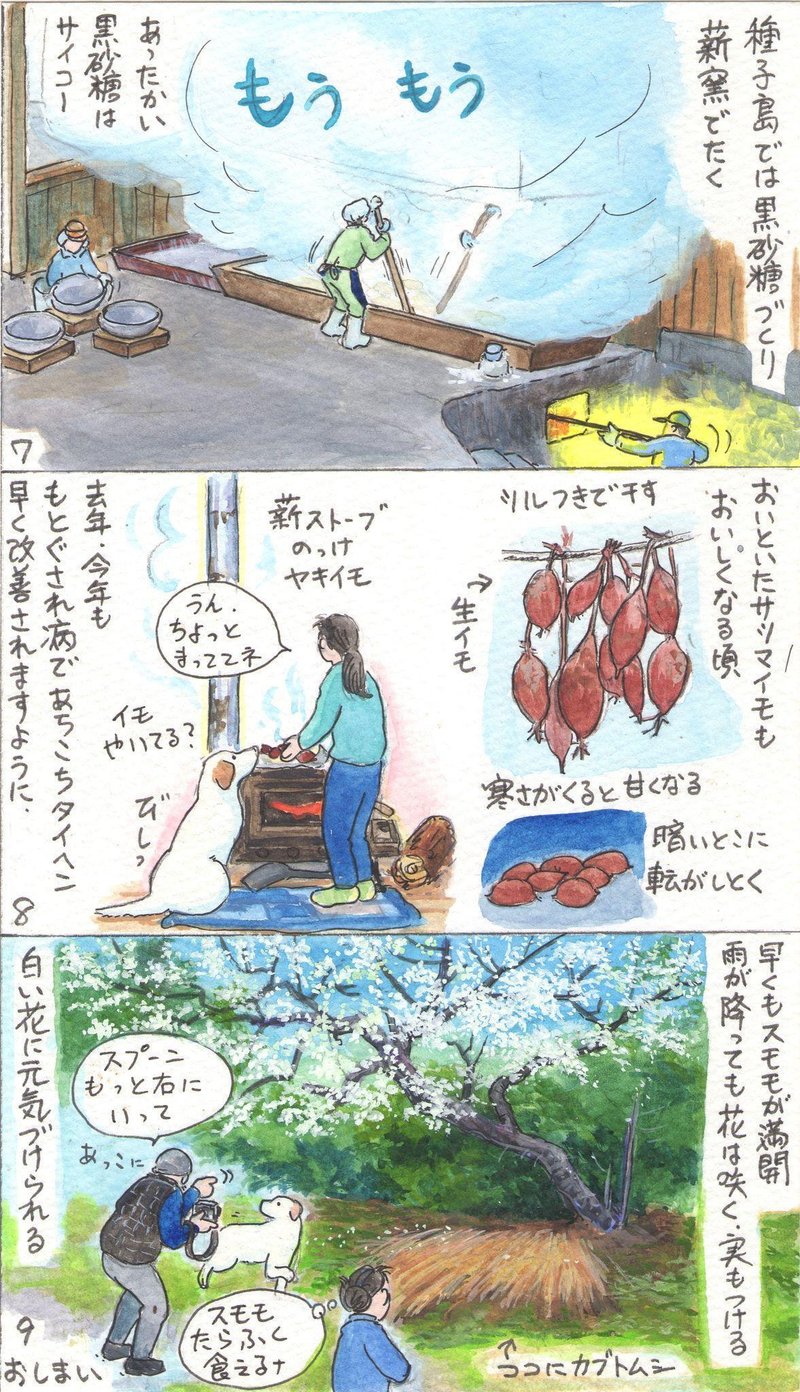 種子島では黒砂糖づくり
薪窯でたく
もう もう
あったかい
黒砂糖は
サイコー
7
おいといたサツマイモも
おいしくなる頃
ツルつきで干す
→生イモ
寒さがくると甘くなる
暗いとこに
転がしとく
薪ストーブ
のっけ
ヤキイモ
うん、
ちょっと
まっててネ
イモ
やいてる?
びしっ
去年・今年も
もとぐされ病であちこちタイヘン
早く改善されますように、
8
早くもスモモが満開
雨が降っても花は咲く・実もつける
スプーン
もっと右に
いって
あっこに
スモモ
たらふく
食えるナ
↑ココにカブトムシ
白い花に元気づけられる
9
おしまい